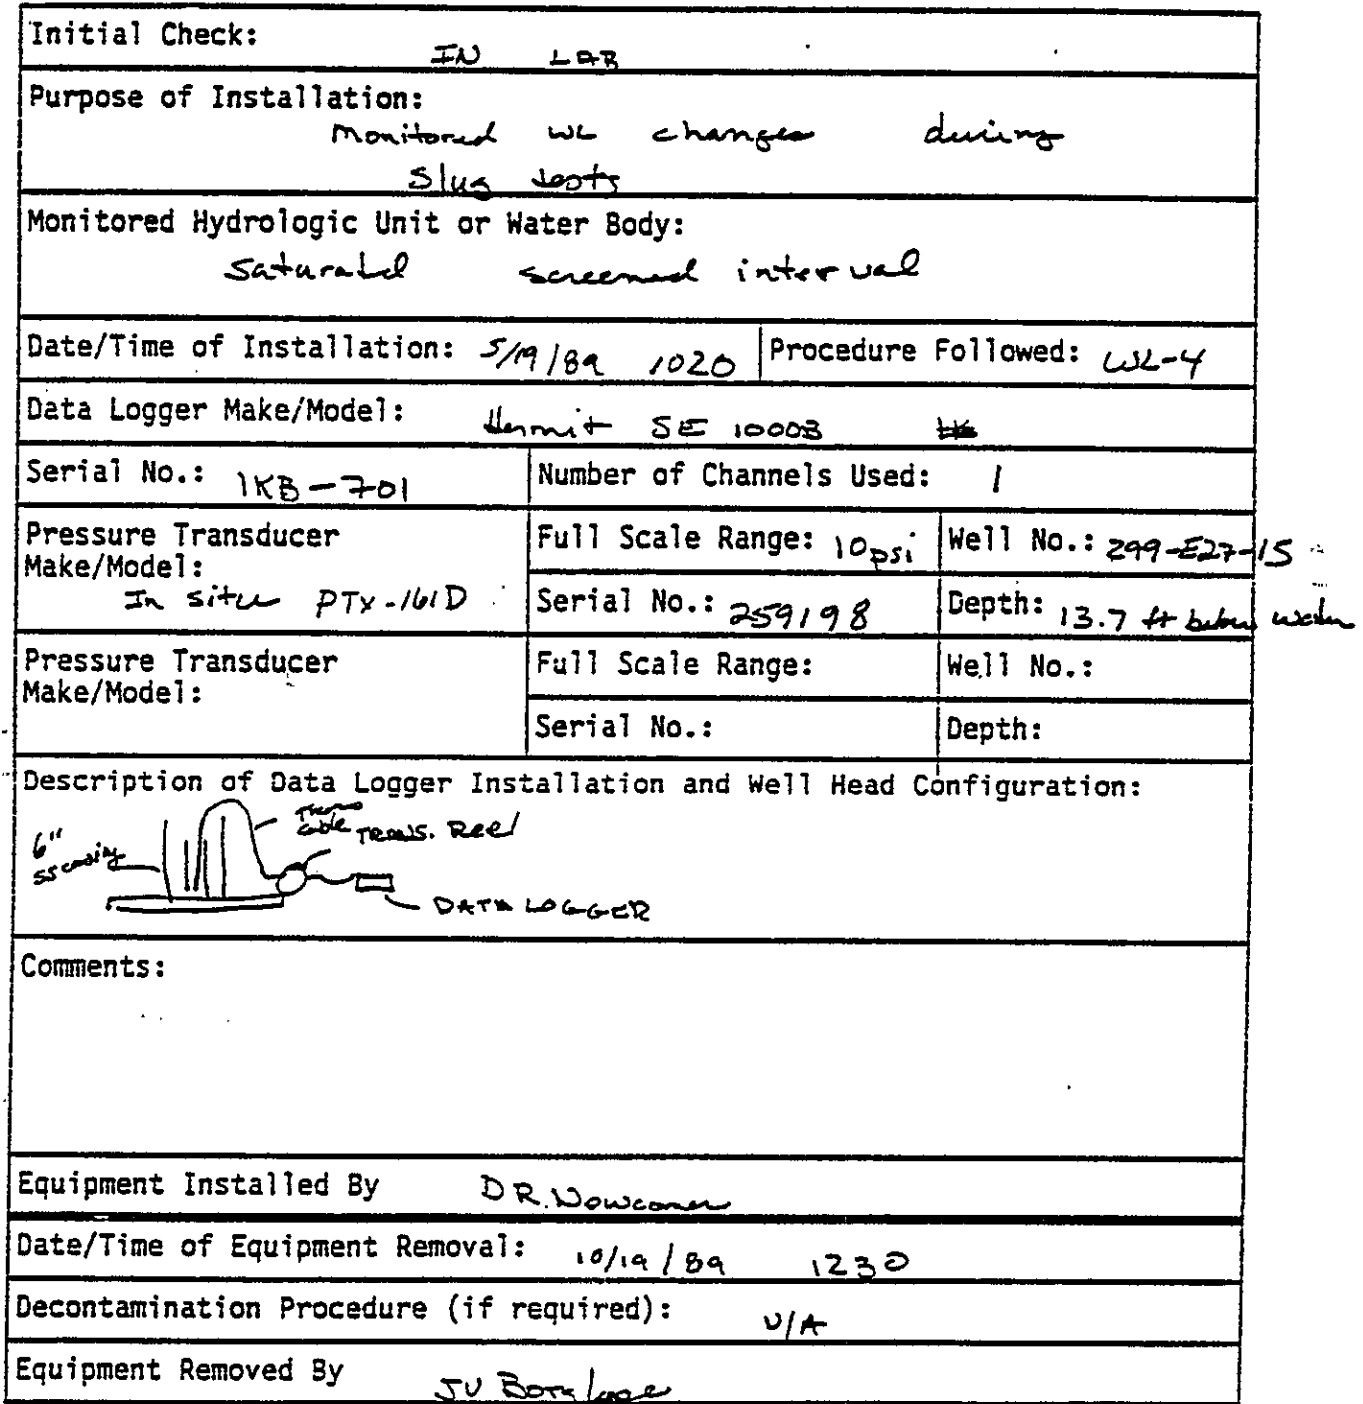 Initial Check: IN LAB
Purpose of Installation:
Monitored WL changes during
Slug tests
Monitored Hydrologic Unit or Water Body:
Saturated screened interval
Date/Time of Installation: 5/19/89 1020 Procedure Followed: WL-4
Data Logger Make/Model: Hermit SE 1000B
Serial No.: 1KB-701 Number of Channels Used: 1
Pressure Transducer Full Scale Range: 10psi Well No.: 299-E27-15
Make/Model:
In situ PTX-161D Serial No.: 259198 Depth: 13.7 ft below water
Pressure Transducer Full Scale Range: Well No.:
Make/Model:
Serial No.: Depth:
Description of Data Logger Installation and Well Head Configuration:
cable TRANS. Reel
6"
SS casing
DATA LOGGER
Comments:
Equipment Installed By DR. Newcomer
Date/Time of Equipment Removal: 10/19/89 1230
Decontamination Procedure (if required): N/A
Equipment Removed By JV